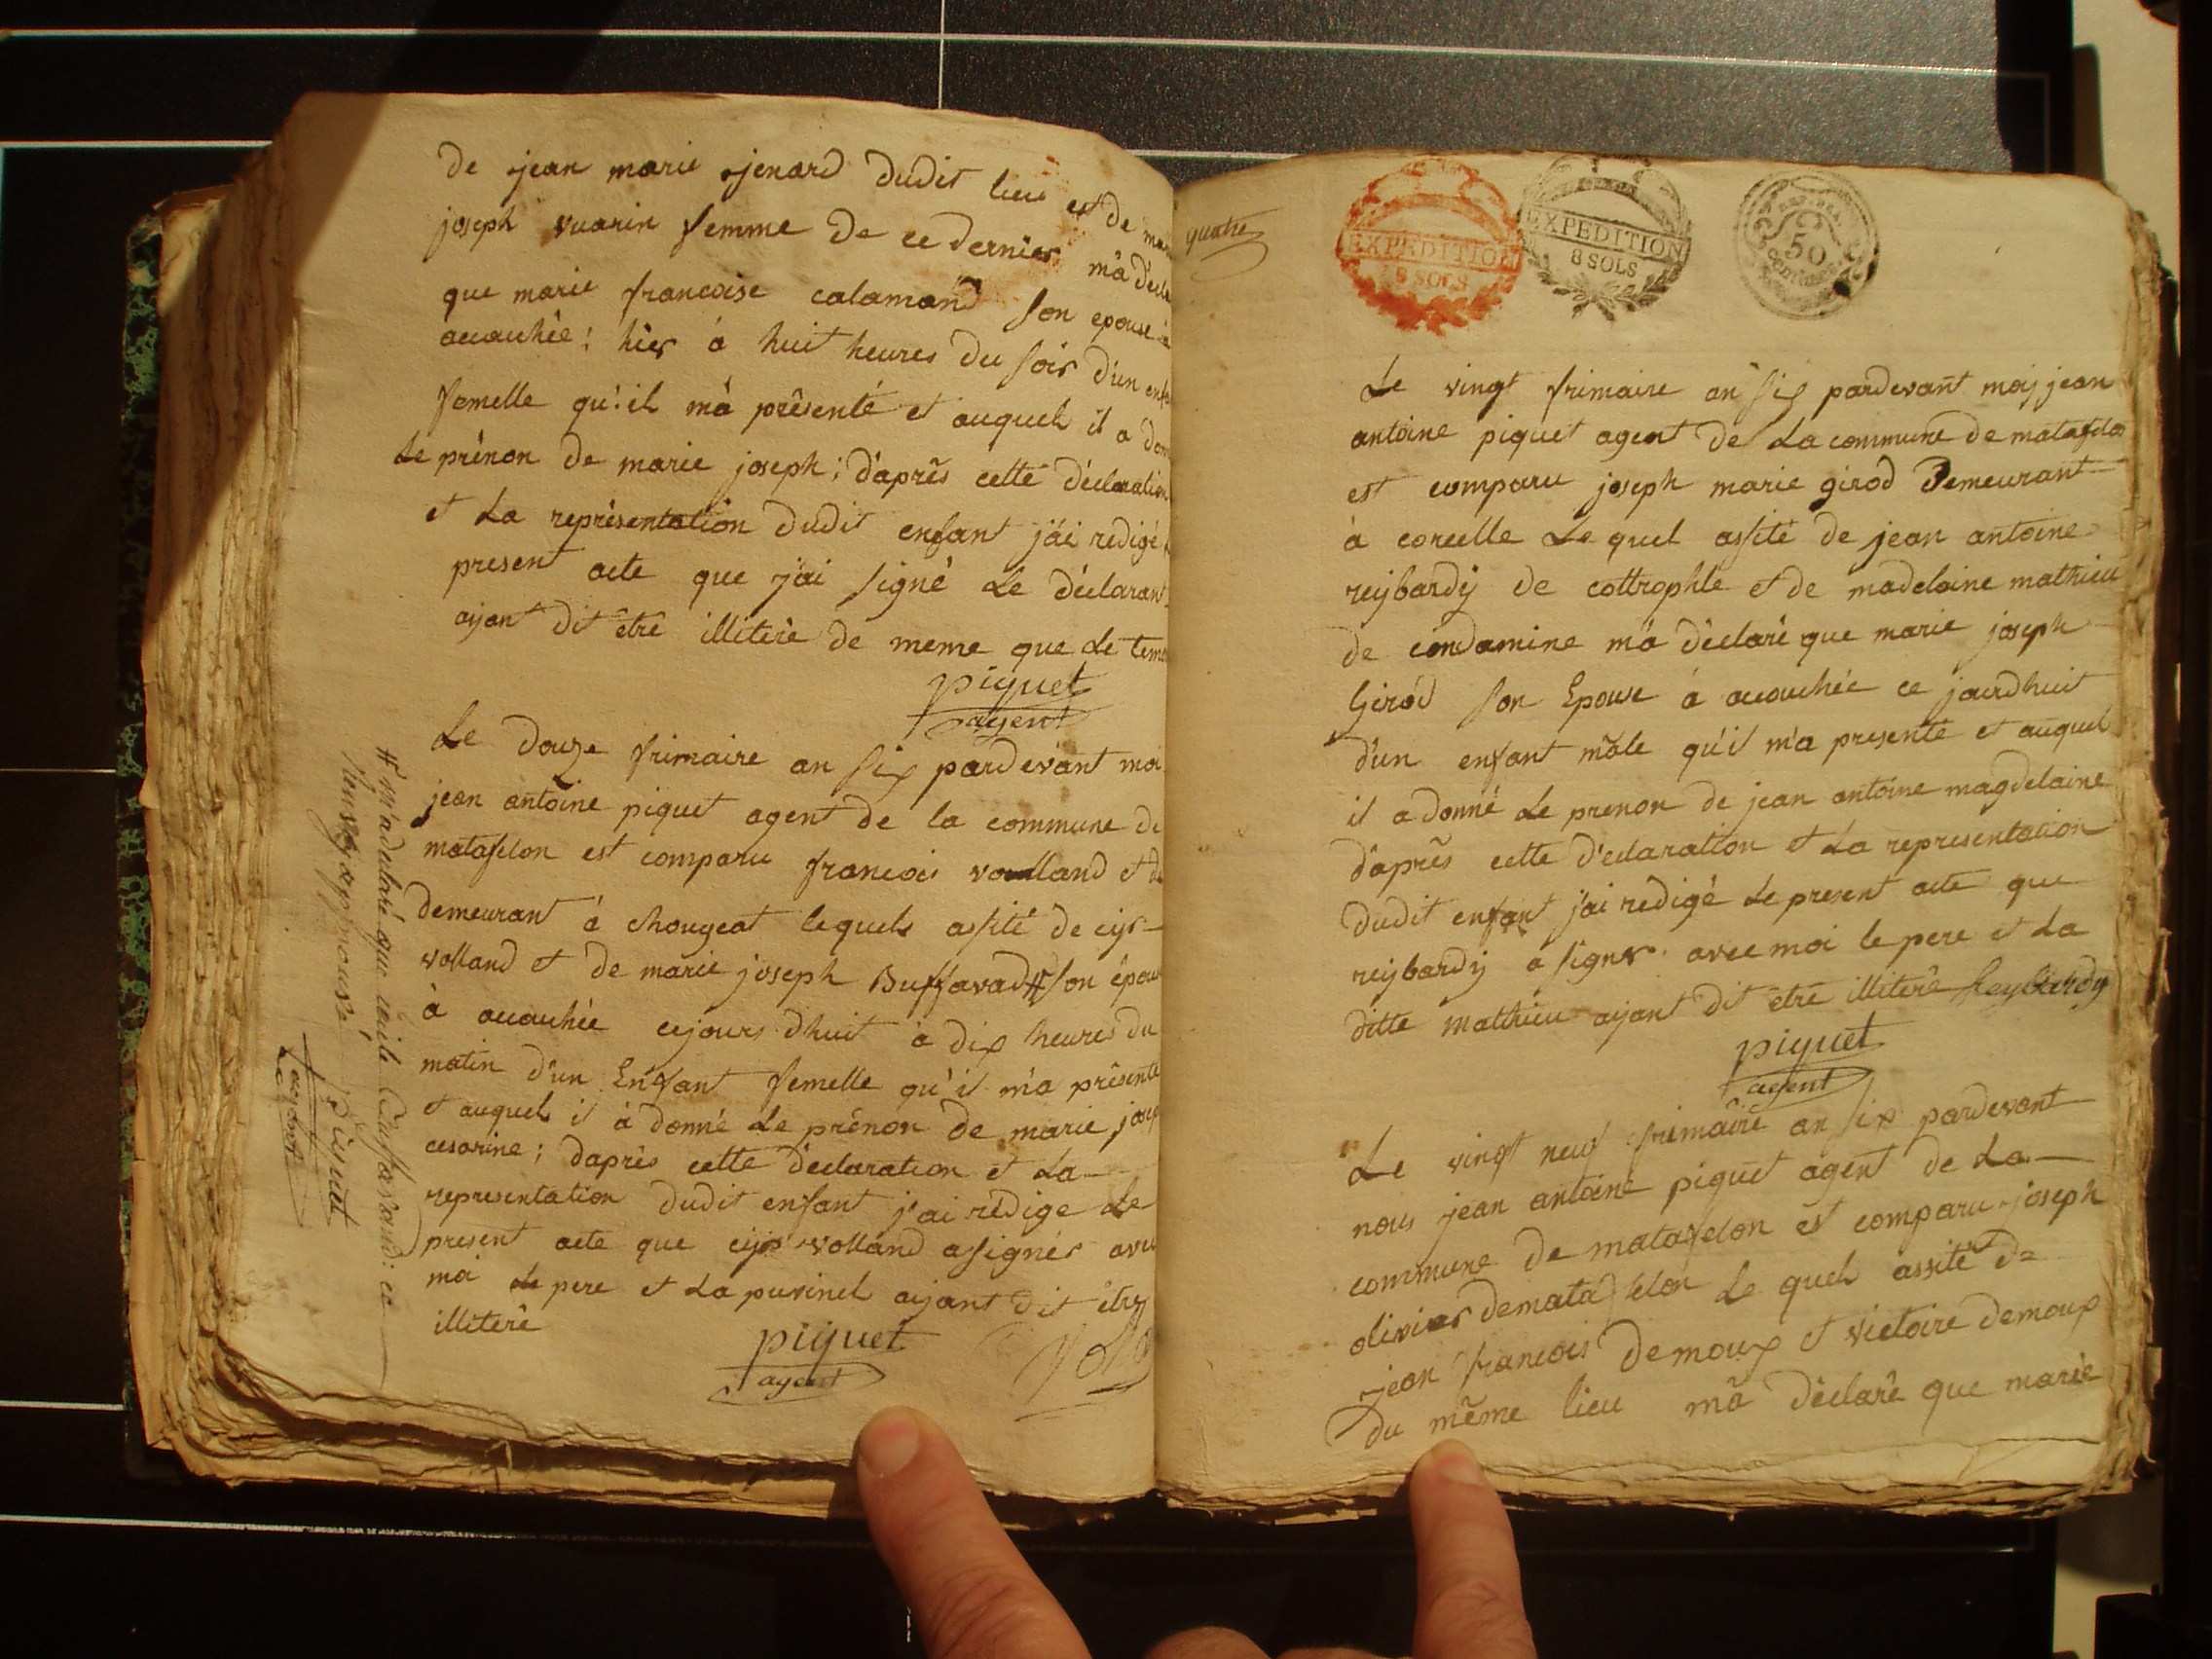 de jean marie jenard dudit lieu et de
joseph vuarin femme de ce dernier m'a
que marie francoise calamand son epouse à
acouchée; hier à huit heures du soir d'un
femelle qu'il m'a présenté et auquel il a
le prénon de marie joseph; d'après cette déclaration
et la représentation dudit enfant j'ai redigé
present acte que j'ai signé le déclarant
ayant dit être illiterè de meme que le
piquet
agent
Le douze frimaire an six pardevant moi
jean antoine piquet agent de la commune de
matafelon est comparu francois volland et
demeurant à chougeat lequels assité de cyr
volland et de marie joseph Buffavad # son
à acouchée cejours d'huit à dix heures du
matin d'un Enfant femelle qu'il m'a présenté
et auquel il à donné le prénon de marie
cesarine; daprès cette déclaration et la
representation dudit enfant j'ai rédige le
present acte que cyr volland a signér
moi le pere et la ayant dit être
illiterè
piquet
agent
# m'a declaré que
piquet
agent
quatre
EXPEDITION
8 SOLS
EXPEDITION
8 SOLS
50
CENTIMES
Le vingt frimaire an six pardevant moy jean
antoine piquet agent de la commune de matafelon
est comparu joseph marie girod Demeurant
à corcelle Le quel assité de jean antoine
reybardy de cottrophle et de madelaine mathieu
de condamine m'a déclaré que marie joseph
Girod son Epouse à acouchée ce jourdhuit
d'un enfant mâle qu'il m'a presenté et auquel
il a donné le prenon de jean antoine magdelaine
d'après cette declaration et la representation
dudit enfant j'ai redigé le present acte que
reybardy a signer avec moi le pere et la
ditte mathieu ayant dit etre illiterè Reybardy
piquet
agent
Le vingt neuf frimaire an six pardevant
nous jean antoine piquet agent de la
commune de matafelon est comparu joseph
olivier de matafelon Le quel assité de
jean francois demoux et victoire demoux
du même lieu m'a déclaré que marie